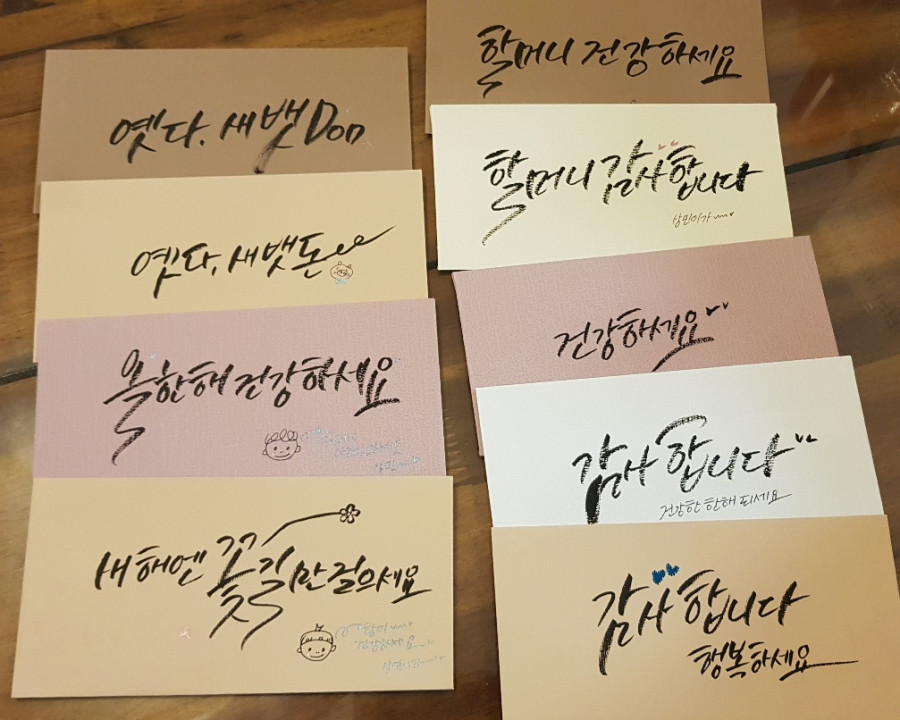 옛다. 새뱃Don
옛다. 새뱃돈
올한해 건강하세요
새해엔 꽃길만 걸으세요
건강하세요
할머니 건강하세요
할머니 감사합니다
상민이가
건강하세요
감사합니다
건강한 한해 되세요
감사합니다
행복하세요